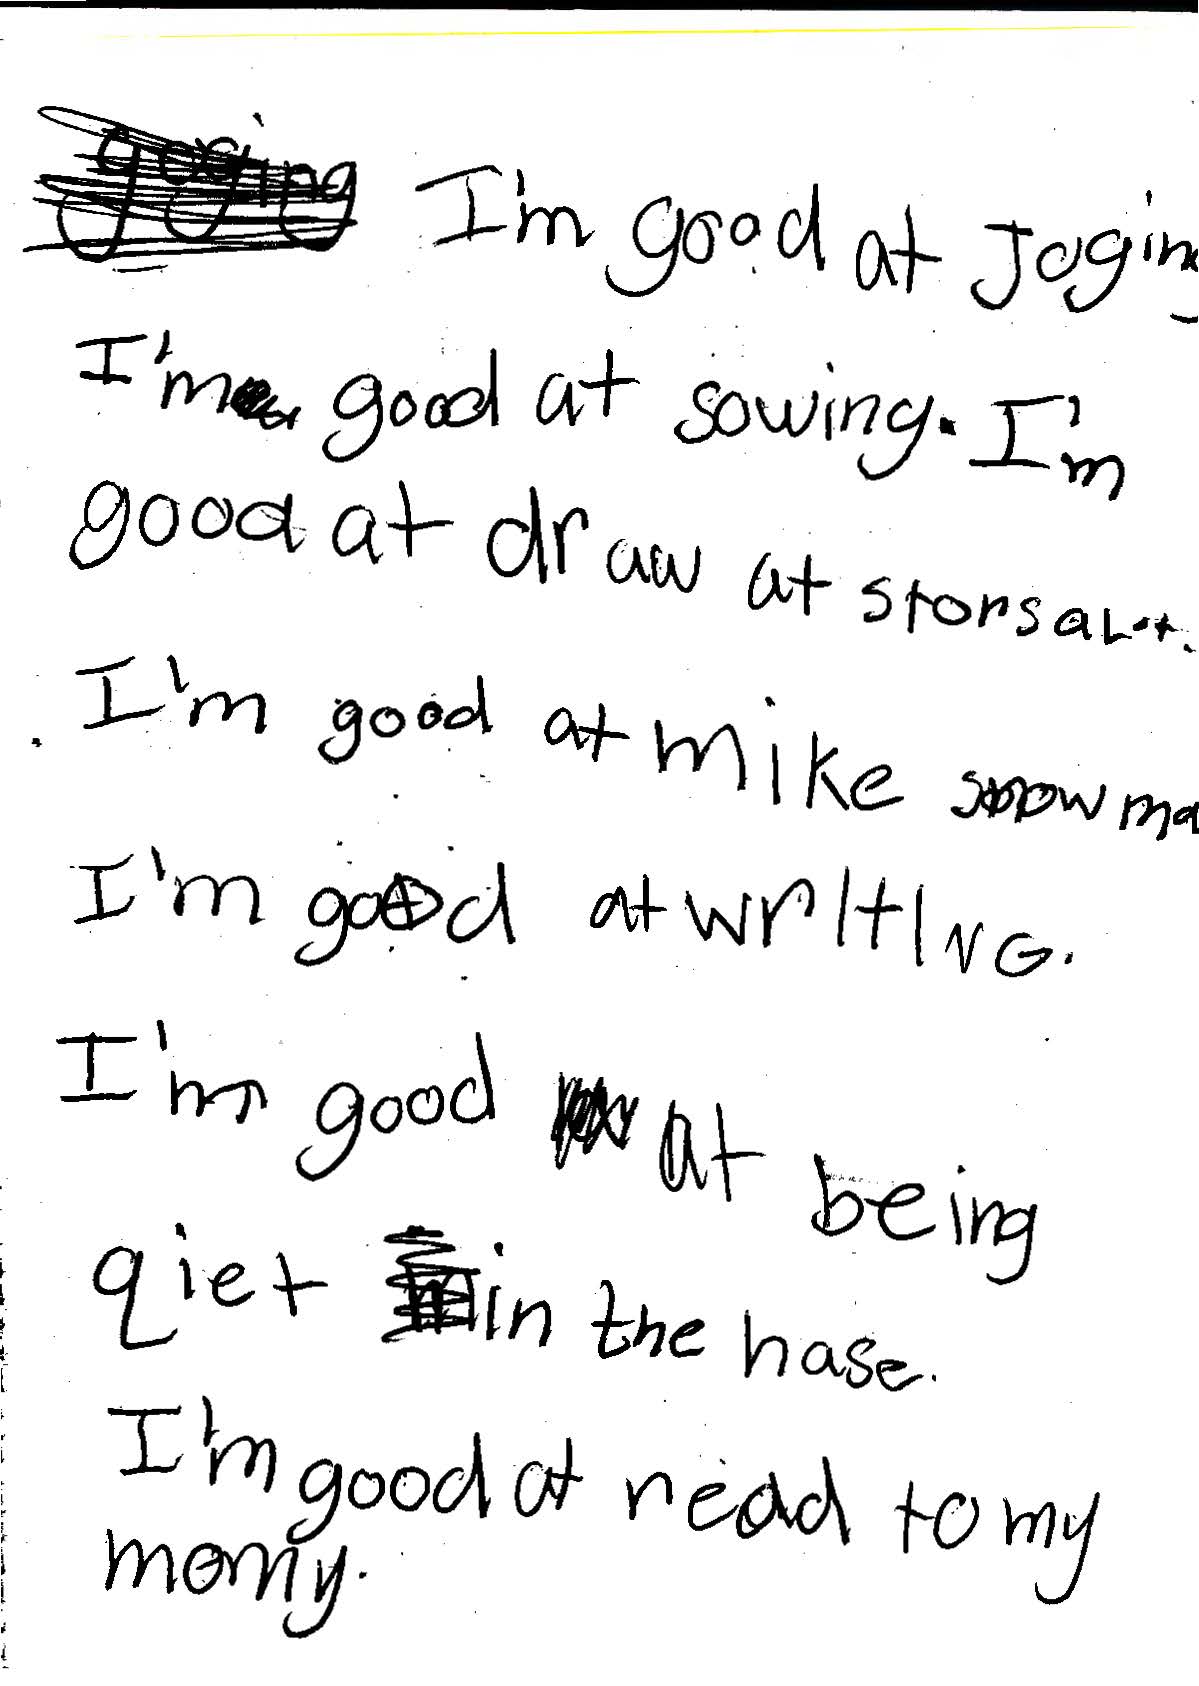 I'm good at Joging
I'm good at sowing. I'm
good at draw at
I'm good at mike snow ma
I'm good at wrItING.
I'm good at being
qiet in the hase.
I'm good at read to my
momy.